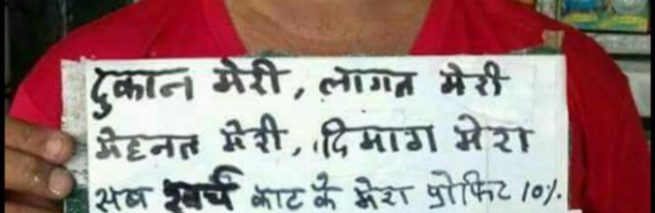 दुकान मेरी, लागत मेरी
मेहनत मेरी, दिमाग मेरा
सब खर्चे काट के मेरा प्रोफिट 10%.